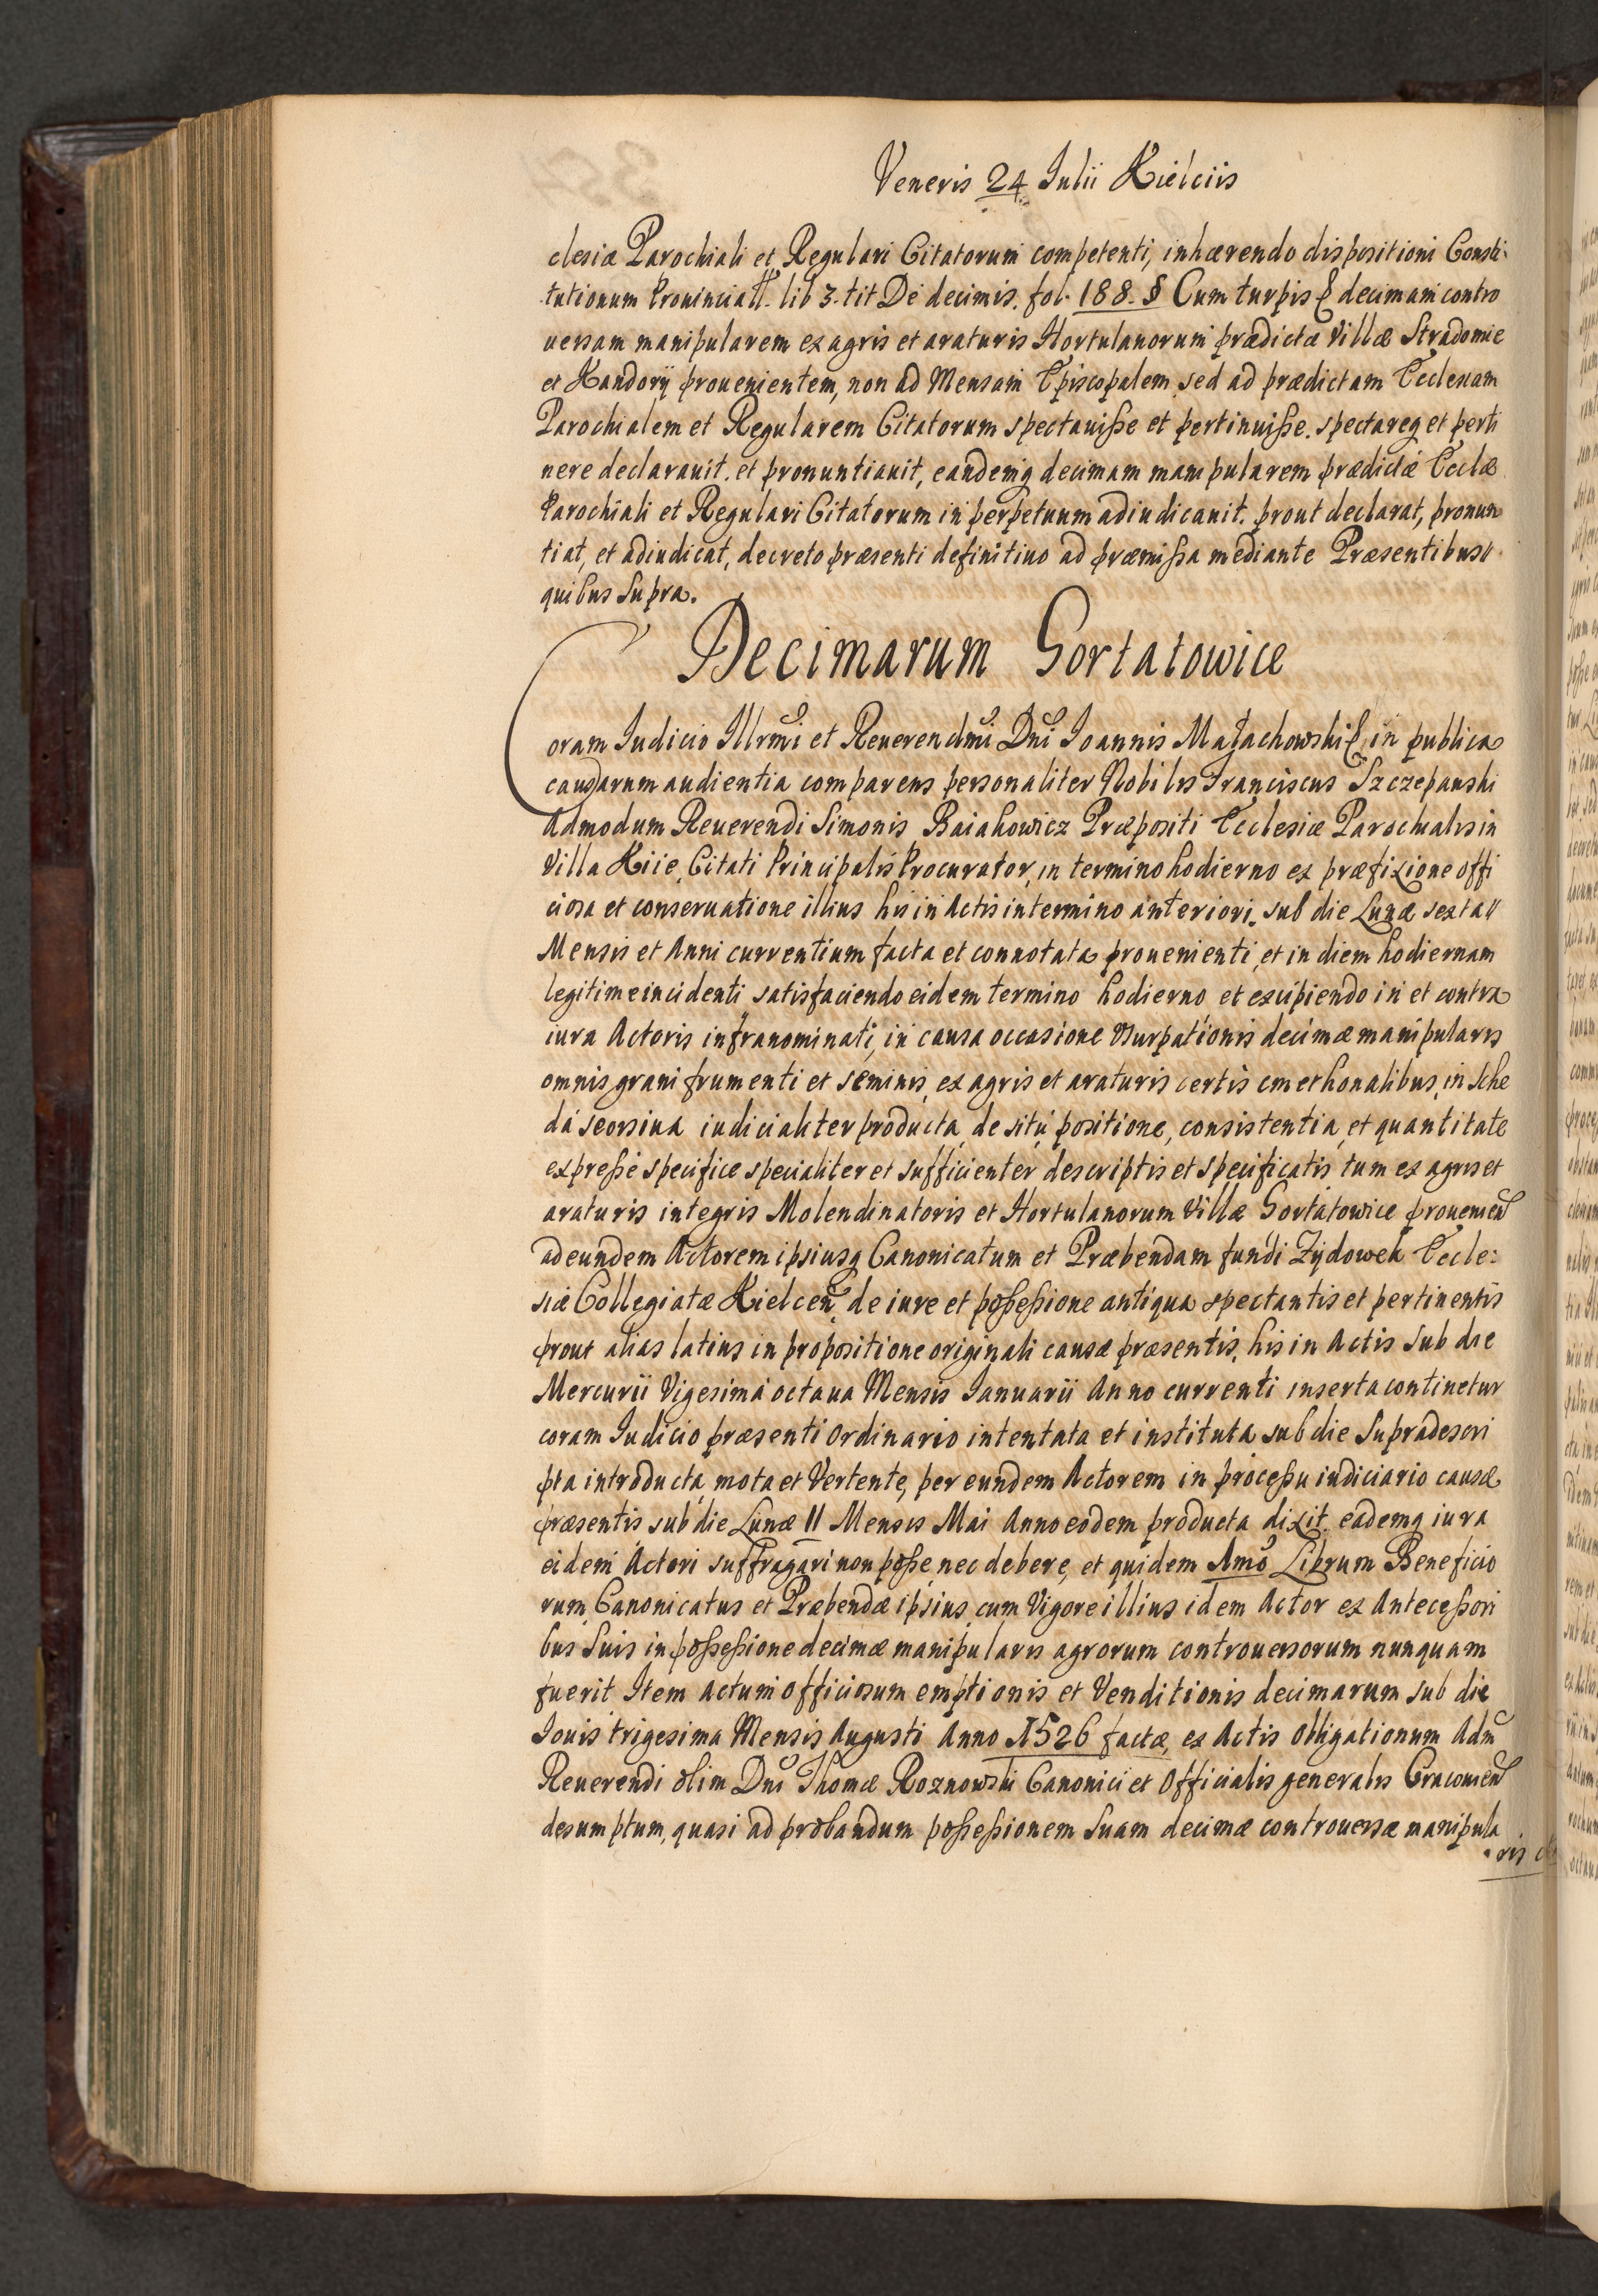 Veneris 24 Iulii Kielciis
clesiæ Parochiali et Regulari Citatorum competenti, inhærendo dispositioni Consti-
tutionum Prouinciall. lib 3. tit De decimis. fol. 188. § Cum turpis decimam contro
uersam manipularem ex agris et araturis Hortulanorum prædictæ Villæ Stradomie
et Kandory prouenientem, non ad Mensam Episcopalem sed ad prædictam Ecclesiam
Parochialem et Regularem Citatorum spectauiße et pertinuiße. spectareq et perti
nere declarauit. et pronuntiauit, eandemq decimam manipularem prædictæ Ecclæ
Parochiali et Regulari Citatorum in perpetuum adiudicauit. prout declarat, pronun
tiat, et adiudicat, decreto præsenti definitiuo ad præmißa mediante Præsentibus
quibus Supra.
Decimarum Gortatowice
Coram Iudicio Illrmi et Reuerendmi Dni Ioannis Małachowski in publica
causarum audientia comparens personaliter Nobilis Franciscus Szczepanski
Admodum Reuerendi Simonis Baiakowicz Præpositi Ecclesiæ Parochialis in
Villa Kiie, Citati Principalis Procurator, in termino hodierno ex præfixione offi
ciosa et conseruatione illius his in Actis in termino anteriori. sub die Lunæ sexta
Mensis et Anni currentium facta et connotata prouenienti, et in diem hodiernam
legitime incidenti satisfaciendo eidem termino hodierno et excipiendo in et contra
iura Actoris infranominati, in causa occasione Vsurpationis decimæ manipularis
omnis grani frumenti et seminis, ex agris et araturis certis cmethonalibus, in Sche
da seorsiua iudicialiter producta, de situ positione, consistentia, et quantitate
expreße specifice specialiter et sufficienter descriptis et specificatis tum ex agris et
araturis integris Molendinatoris et Hortulanorum Villæ Gortatowice prouenien
ad eundem Actorem ipsiusq Canonicatum et Præbendam fundi Zydowek Eccle-
siæ Collegiatæ Kielcen de iure et poßeßione antiqua spectantis et pertinentis
prout alias latius in propositione originali causæ præsentis, his in Actis sub die
Mercurii Vigesima octaua Mensis Ianuarii Anno currenti inserta continetur
coram Iudicio præsenti Ordinario intentata et instituta sub die Supradescri
pta introducta, mota et Vertente, per eundem Actorem in proceßu iudiciario causæ
præsentis sub die Lunæ 11 Mensis Mai Anno eodem producta dixit. eademq iura
eidem Actori suffragari non poße, nec debere, et quidem Amo Librum Beneficio
rum, Canonicatus et Præbendæ ipsius, cum Vigore illius idem Actor ex Anteceßori
bus Suis in poßeßione decimæ manipularis agrorum controuersorum nunquam
fuerit Item actum officiosum emptionis et Venditionis decimarum sub die
Iouis trigesima Mensis Augusti Anno 1526 factæ, ex Actis Obligationum Adm
Reuerendi olim Dni Thomæ Roznowski Canonici et Officialis generalis Cracouien
desumptum, quasi ad probandum poßeßionem Suam decimæ controuersæ manipula
ris